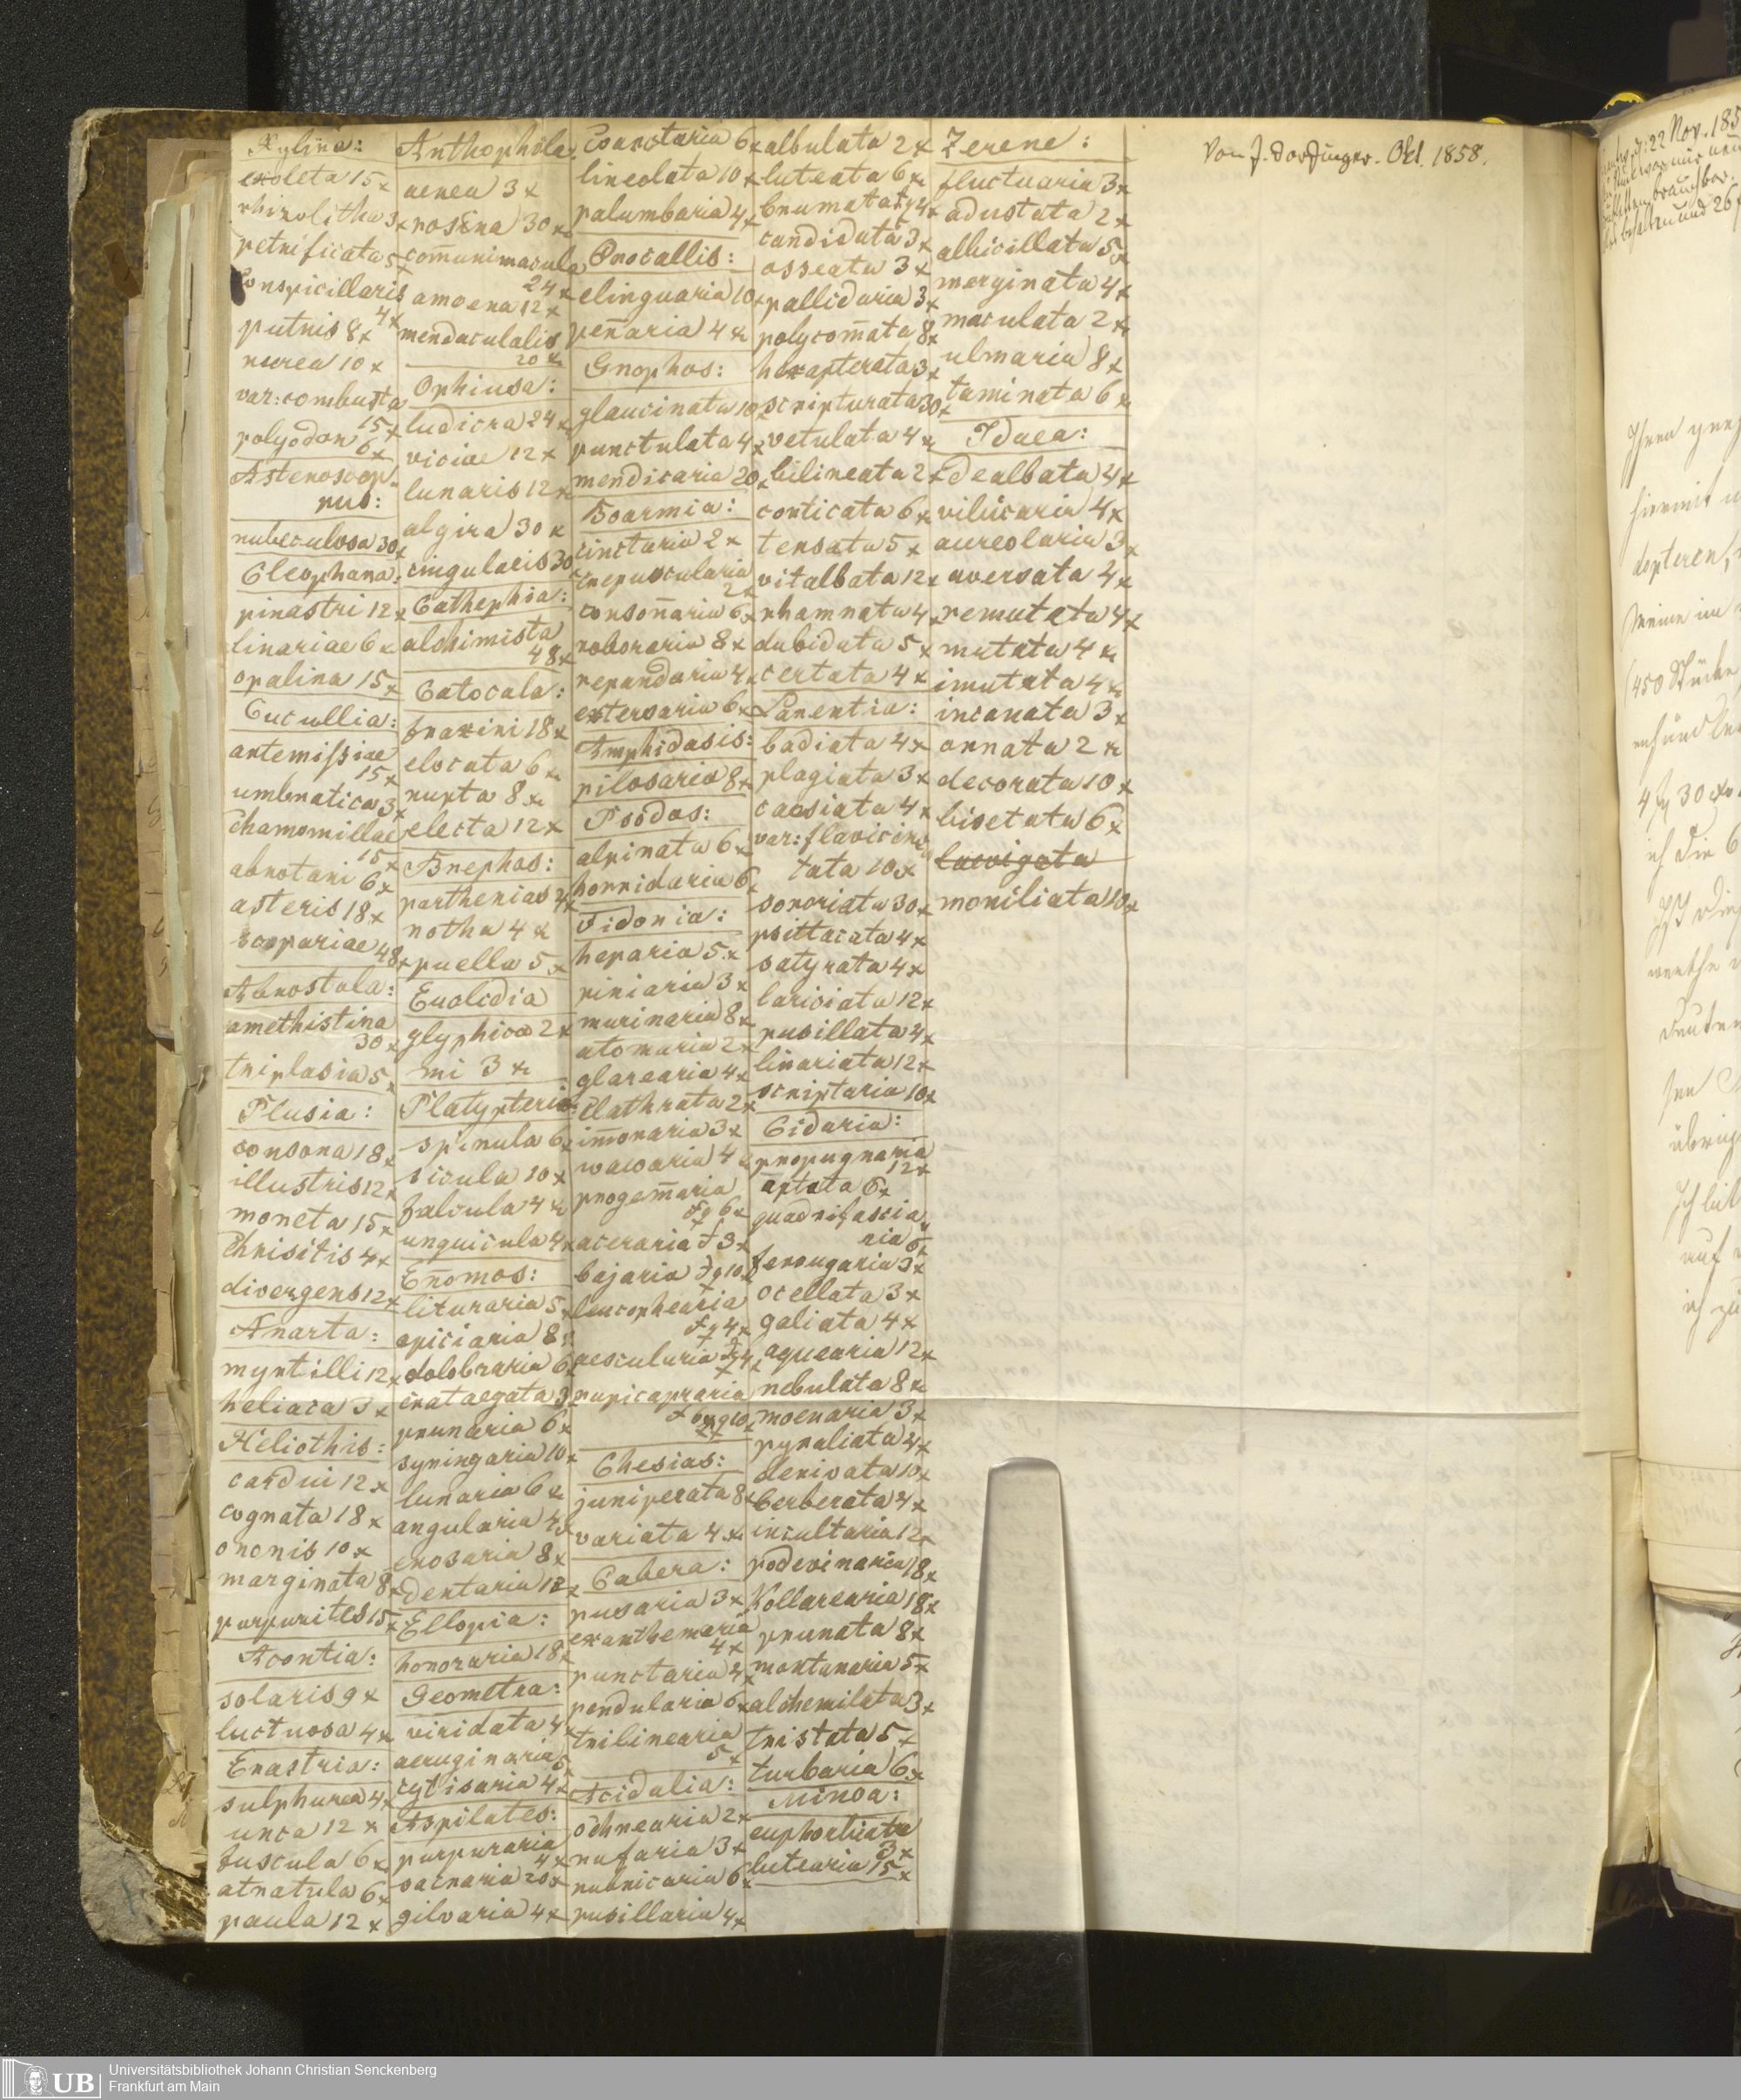 Xylina:
exoleta 15 x
rhizolitha 3 x
petrificata 5 x
Conspicillaris
4 x
putris 8 x
rurea 10 x
var: combusta
15 x
polyodon 6 x
Asteroscop-
rus:
nubeculosa 30 x
Cleophana:
pinastri 12 x
linariae 6 x
opalina 15 x
Cucullia:
artemisiae
15 x
umbratica 3 x
chamomillae
15 x
abrotani 6 x
asteris 18 x
scopariae 48 x
Abrostola:
amethistina
30 x
triplasia 5 x
Plusia:
consona 18 x
illustris 12 x
moneta 15 x
Chrisitis 4 x
divergens 12 x
Anarta:
myrtilli 12 x
heliaca 3 x
Heliothis:
cardui 12 x
cognata 18 x
ononis 10 x
marginata 8 x
purpurites 15 x
Acontia:
solaris 9 x
luctuosa 4 x
Erastria:
sulphurea 4 x
unca 12 x
fuscula 6 x
atratula 6 x
paula 12 x
Anthophila:
aenea 3 x
rosina 30 x
com̄unimacula
24 x
amoena 12 x
mendaculalis
20 x
Ophiusa:
ludicra 24 x
viciae 12 x
lunaris 12 x
algira 30 x
cingularis 30 x
Cathephia:
alchimista
48 x
Catocala:
fraxini 18 x
elocata 6 x
nupta 8 x
electa 12 x
Brephos:
parthenias 4 x
notha 4 x
puella 5 x
Euclidia
glyphica 2 x
mi 3 x
Platypteria:
spinula 6 x
sicula 10 x
falcula 4 x
unguicula 4 x
En̄omos:
lituraria 5 x
apiciaria 8 x
dolobraria 6 x
crataegata 3 x
prunaria 6 x
syringaria 10 x
lunaria 6 x
angularia 4 x
erosaria 8 x
dentaria 12 x
Ellopia:
honoraria 18 x
Geometra:
viridata 4 x
aeruginaria 5 x
cytisaria 4 x
Aspilates:
purpuraria
4 x
sacraria 20 x
gilvaria 4 x
Coarctaria 6 x
lineolata 10 x
palumbaria 4 x
Crocallis:
elinguaria 10 x
pen̄aria 4 x
Gnophos:
glaucinata 10 x
punctulata 4 x
mendicaria 20 x
Boarmia:
cinctaria 2 x
crepuscularia
2 x
conson̄aria 6 x
roboraria 8 x
repandaria 4 x
extersaria 6 x
Amphidasis:
pilosaria 8 x
Psodos:
alpinata 6 x
horridaria 6 x
Fidonia:
heparia 5 x
piniaria 3 x
murinaria 8 x
atomaria 2 x
glarearia 4 x
clathrata 2 x
im̄oraria 3 x
wavaria 4 x
progem̄aria
♂♀ 6 x
aceraria ♂ 3 x
bajaria ♂♀ 10 x
leucophearia
♂♀ 4 x
aescularia ♂♀ 4 x
rupicapraria
Chesias:
juniperata 8 x
variata 4 x
Cabera:
pusaria 3 x
exanthemaria
4 x
punctaria 4 x
pendularia 6 x
trilinearia
5 x
Acidalia:
ochrearia 2 x
rufaria 3 x
rubricaria 6 x
pusillaria 4 x
albulata 2 x
luteata 6 x
candidata 3 x
osseata 3 x
pallidaria 3 x
polycom̄ata 8 x
hexapterata 3 x
scripturata 30 x
vetulata 4 x
bilineata 2 x
corticata 6 x
tersata 5 x
vitalbata 12 x
rhamnata 4 x
dubidata 5 x
certata 4 x
Larentia:
badiata 4 x
plagiata 3 x
caesiata 4 x
var: flavicinc
tata 10 x
sororiata 30 x
psittacata 4 x
satyrata 4 x
lariciata 12 x
pusillata 4 x
linariata 12 x
scriptaria 10 x
Cidaria:
propugnaria
12 x
aptata 6 x
quadrifascia
ria 6 x
ferrugaria 3 x
ocellata 3 x
galiata 4 x
aquearia 12 x
nebulata 8 x
moenaria 3 x
pyraliata 4 x
derivata 10 x
berberata 4 x
incultaria 12 x
podevinaria 18 x
Kollarearia 18 x
prunata 8 x
montanaria 5 x
alchemilata 3 x
tristata 5 x
turbaria 6 x
Minoa:
euphorbiata
3 x
lutearia 15 x
Zerene:
fluctuaria 3 x
adustata 2 x
albicillata 5 x
marginata 4 x
maculata 2 x
ulmaria 8 x
taminata 6 x
Idaea:
dealbata 4 x
vilicaria 4 x
aureolaria 3 x
aversata 4 x
remutata 4 x
mutata 4 x
imutata 4 x
incanata 3 x
ornata 2 x
decorata 10 x
bisetata 6 x
laevigata
moniliata 10 x
Von J. Dorfinger. Okt. 1858.
22 Nov. 185
UB
Universitätsbibliothek Johann Christian Senckenberg
Frankfurt am Main